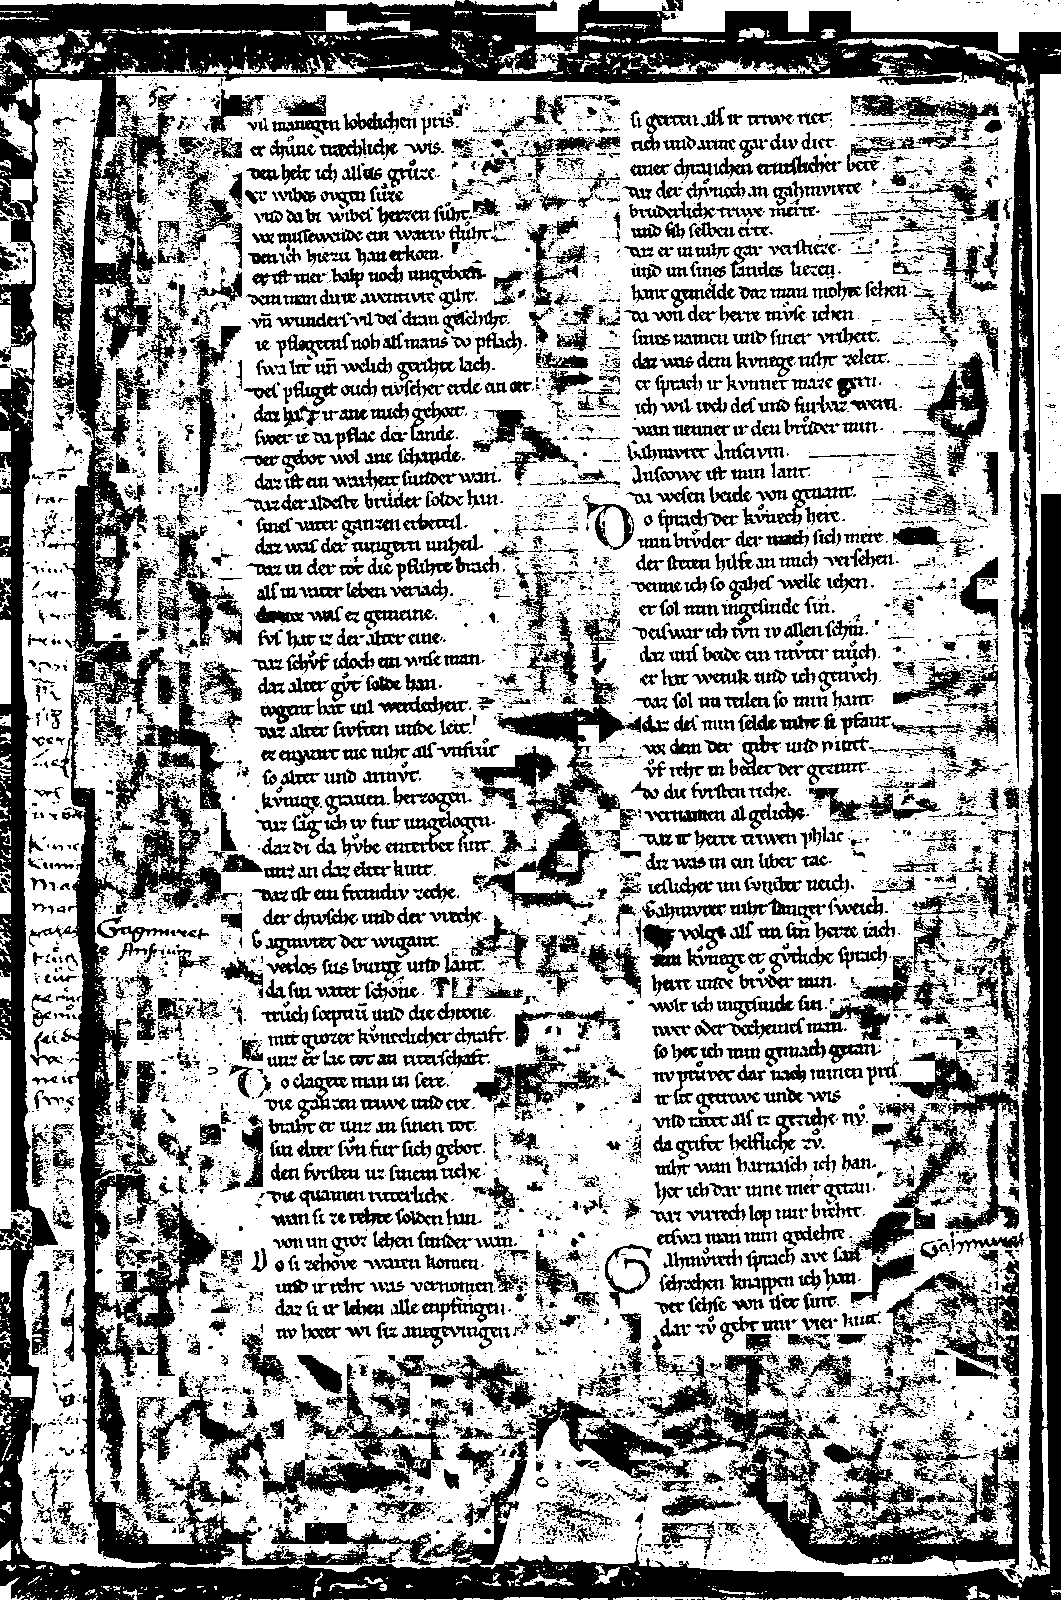 vil manegen lobelichen pris.
er chune træchliche wis.
den helt ich alsus gruze.
er wibes ougen suze
vnd da bi wibes herzen suht.
vor missewende ein wariv fluht.
den ich hiezu han erkorn.
er ist mer halp noch ungeborn.
dem man dirre aventivre giht.
vñ wunders vil des dran geschiht.
ie pflagens noh als mans do pflach.
swa lit uñ welich gerihte lach.
des pfliget ouch tivscher erde ein ort.
daz ir ane mich gehort.
swer ie da pflac der lande.
der gebot wol ane schande.
daz ist ein warheit sunder wan.
daz der aldeste bruder solde han.
sines vater ganzen erbeteil.
daz was der iungern unheil.
daz in der tot die pflihte brach.
als in vater leben veriach.
was ez gemeine.
svs hat iz der alter eine.
daz schvf idoch ein wise man.
daz alter gvt solde han.
iugent hat vil werdicheit.
daz alter siuften unde leit.
ez enwart nie niht als vnfruit
so alter und armvt.
kvnige grauen. herzogen.
daz sag ich iv fur ungelogen.
daz di da hvbe enterbet sint.
unz an daz elter kint.
daz ist ein fremdiv zeche.
der chivsche und der vreche.
Gagmuret der wigant.
verlos sus burge und lant.
da sin vater schone
truch sceptrũ und die chrone.
mit grozer kvneclicher chraft.
unz er lac tot an riterschaft.
Do clagete man in sere.
die ganzen triwe und ere.
braht er unz an sinen tot.
sin elter svn fur sich gebot.
den fvrsten uz sinem riche.
die quamen ritterliche.
wan si ze rehte solden han.
von im groz lehen sunder wan.
Do si zehove waren komen.
und ir reht was vernomen.
daz si ir lehen alle enpfingen.
nv horet wi siz anegevingen.
si gerten als ir triwe riet.
rich und arme gar div diet.
einer chranchen ernslicher bete
daz der chvnech an gahmvrete
bruderliche triwe merte.
und sih selben erte.
daz er in niht gar verstieze.
und im sines landes liezen.
hant gemelde daz man mohte sehen
da von der herre mvse iehen
sines namen und siner vriheit.
daz was dem kvnege niht zeleit.
er sprach ir kvnnet maze gern.
ich wil iwch des und furbaz wern.
wan nennet ir den bruder min.
Gahmvret Ansevin.
Ansowe ist min lant
da wesen beide von genant.
Do sprach der kvnech here.
min brvder der mach sich mere.
der steten hilfe an mich versehen.
denne ich so gahes welle iehen.
er sol min ingesinde sin.
deiswar ich tvn iv allen schin.
daz uns beide ein mvter truch.
er hat wenik und ich genvch.
daz sol im teilen so min hant
daz des min selde niht si pfant.
vor dem der gibt und nimt.
vf reht in beider der gezimt.
do die fvrsten riche.
vernamen al geliche
daz ir herre triwen phlac
daz was in ein liber tac.
ieslicher im svnder neich.
Gahmvret niht langer sweich.
der volge als im sin herze iach.
zem kvnege er gvtliche sprach
herre unde brvder min.
wolt ich ingesinde sin
iwer oder decheines man.
so het ich min gemach getan.
nv prvvet dar nach minen pris
ir sit getriwe unde wis
vnd ratet als iz geziehe nv.
da grifet helfliche zv.
niht wan harnasch ich han.
het ich dar inne mer getan.
daz virrech lop mir brehte.
etswa man min gedehte.
Gahmvrech sprach ave san
sehzehen knappen ich han.
der sehse von iser sint.
dar zv gebt mir vier kint.
Gagmuret
Ansiuin
Gahmuret